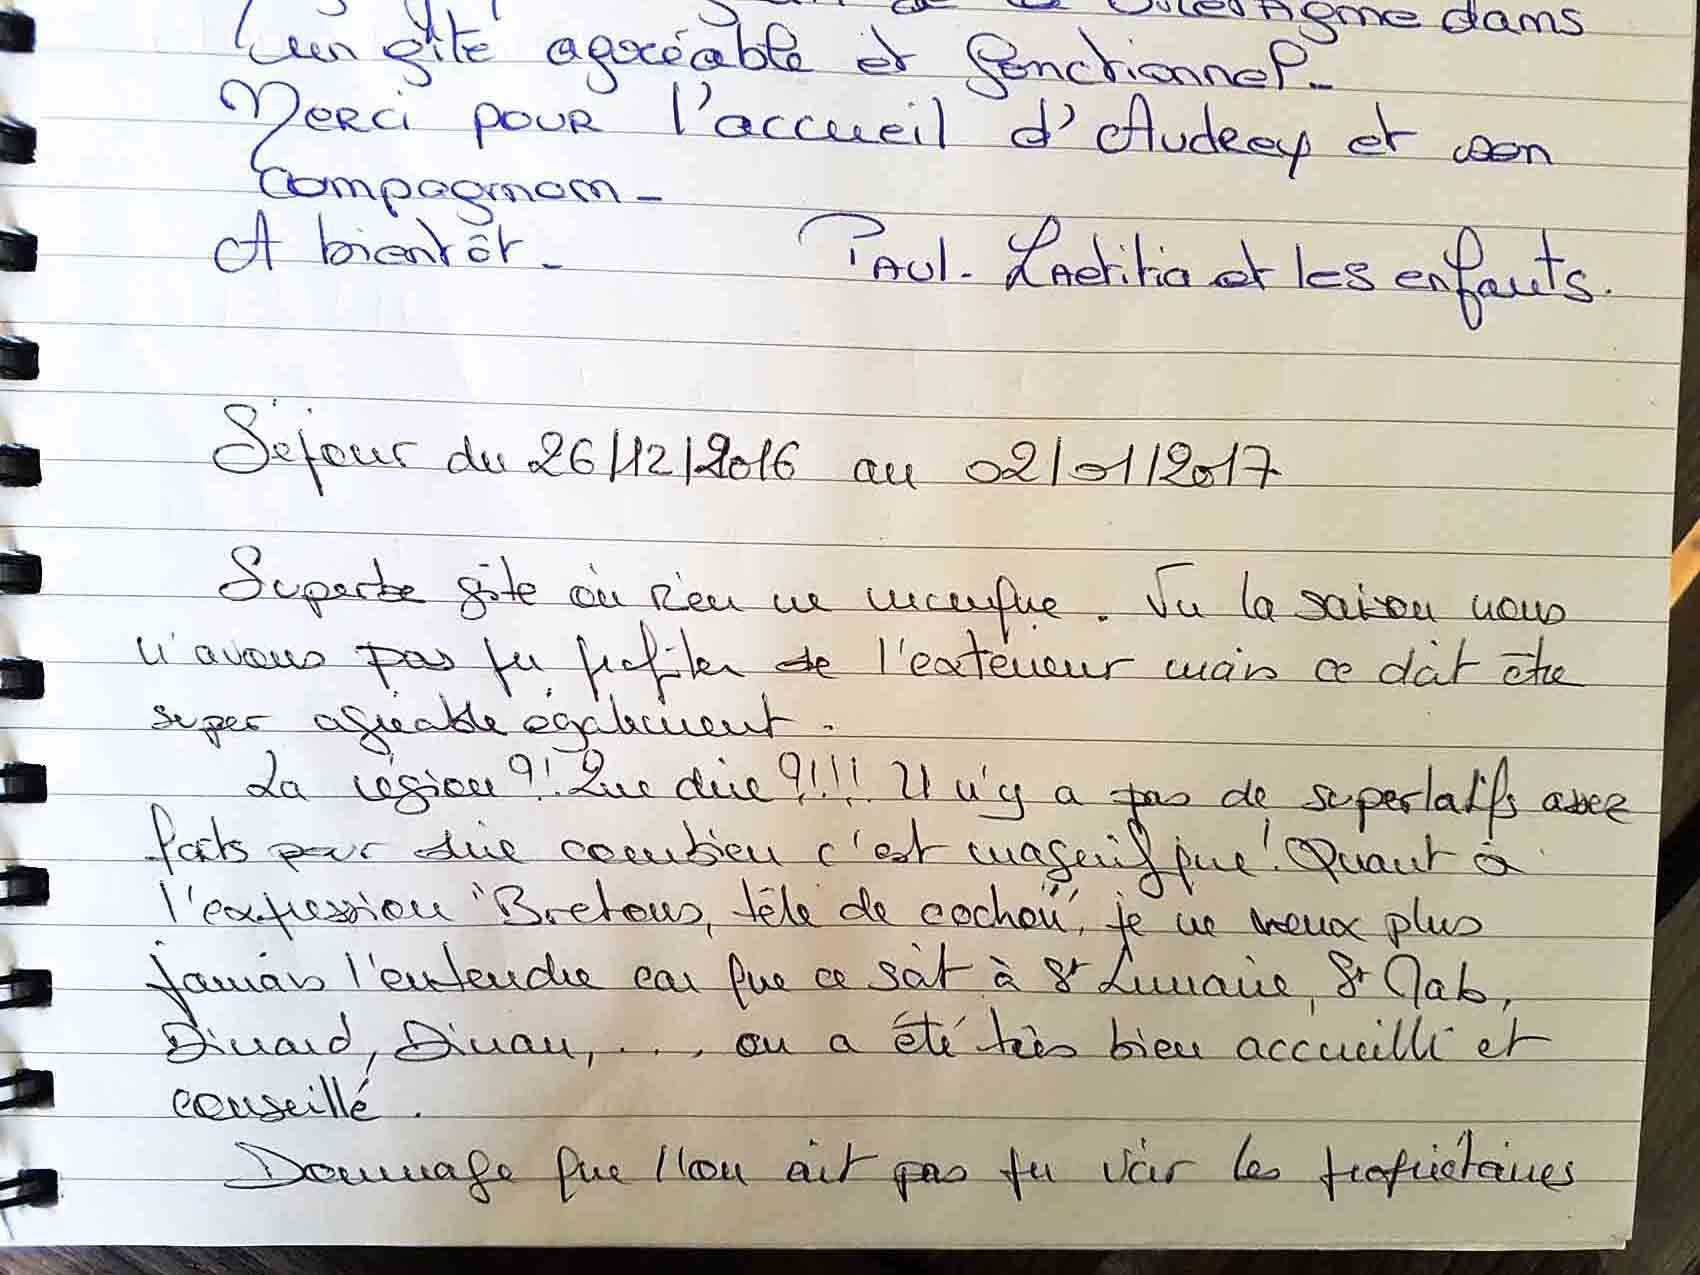 de la Bretagne dans
un gîte agréable et fonctionnel_
Merci pour l'accueil d'Audrey et son
compagnon_
A bientôt_ Paul_ Laetitia et les enfants.
Séjour du 26/12/2016 au 02/01/2017
Superbe gîte où rien ne manque. Vu la saison nous
n'avons pas pu profiter de l'extérieur mais ce doit être
super agréable également.
La région?! Que dire?!!! Il n'y a pas de superlatifs assez
forts pour dire combien c'est magnifique! Quant à
l'expression "Bretons, tête de cochon", je ne veux plus
jamais l'entendre car que ce soit à St Lunaire, St Malo,
Dinard, Dinan, ..., on a été très bien accueilli et
conseillé.
Dommage que l'on ait pas pu voir les propriétaires